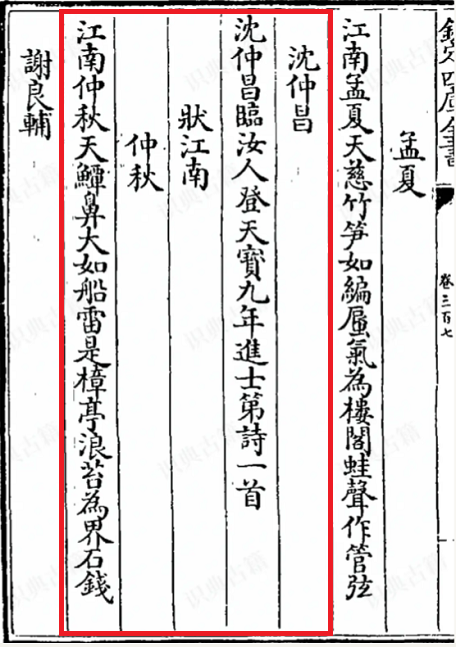 欽定四庫全書
卷三百七
孟夏
江南孟夏天慈竹笋如編蜃氣為樓閣蛙聲作管弦
沈仲昌
沈仲昌臨汝人登天寶九年進士第詩一首
狀江南
仲秋
江南仲秋天鱏鼻大如船雷是樟亭浪苔為界石錢
謝良輔